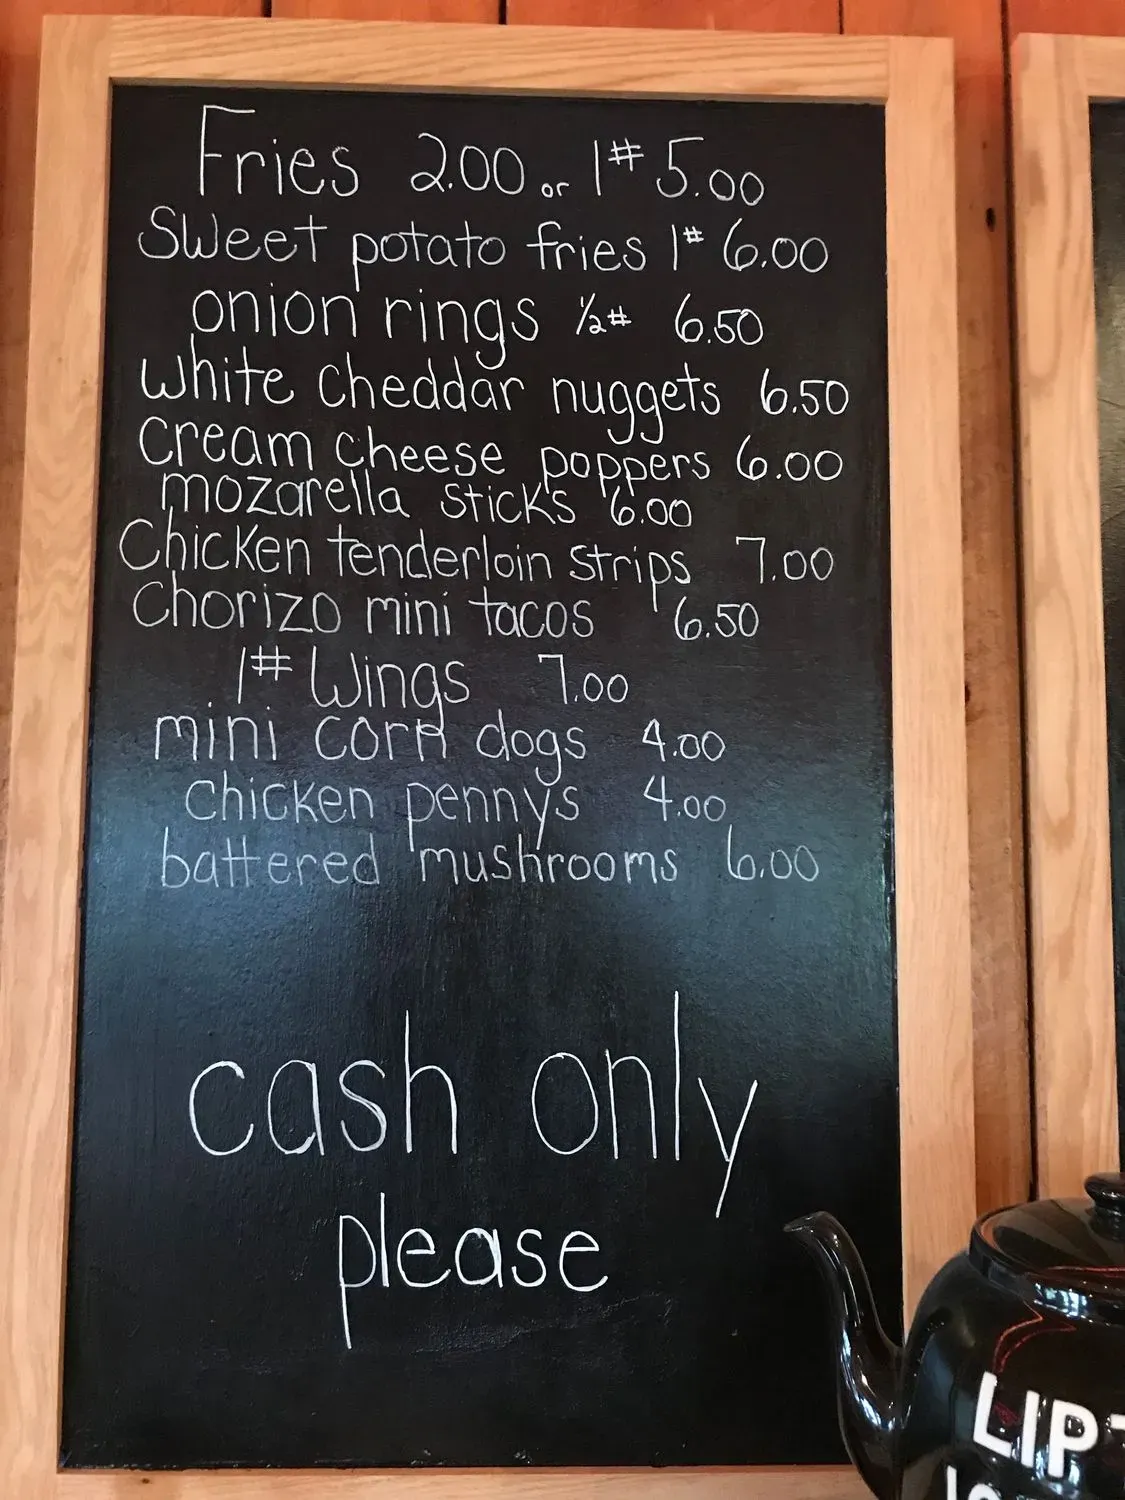 Fries 2.00 or 1# 5.00
Sweet potato fries 1# 6.00
onion rings ½# 6.50
white cheddar nuggets 6.50
cream cheese poppers 6.00
mozarella sticks 6.00
Chicken tenderloin strips 7.00
Chorizo mini tacos 6.50
1# Wings 7.00
mini corn dogs 4.00
chicken pennys 4.00
battered mushrooms 6.00
cash only
please
LIPT